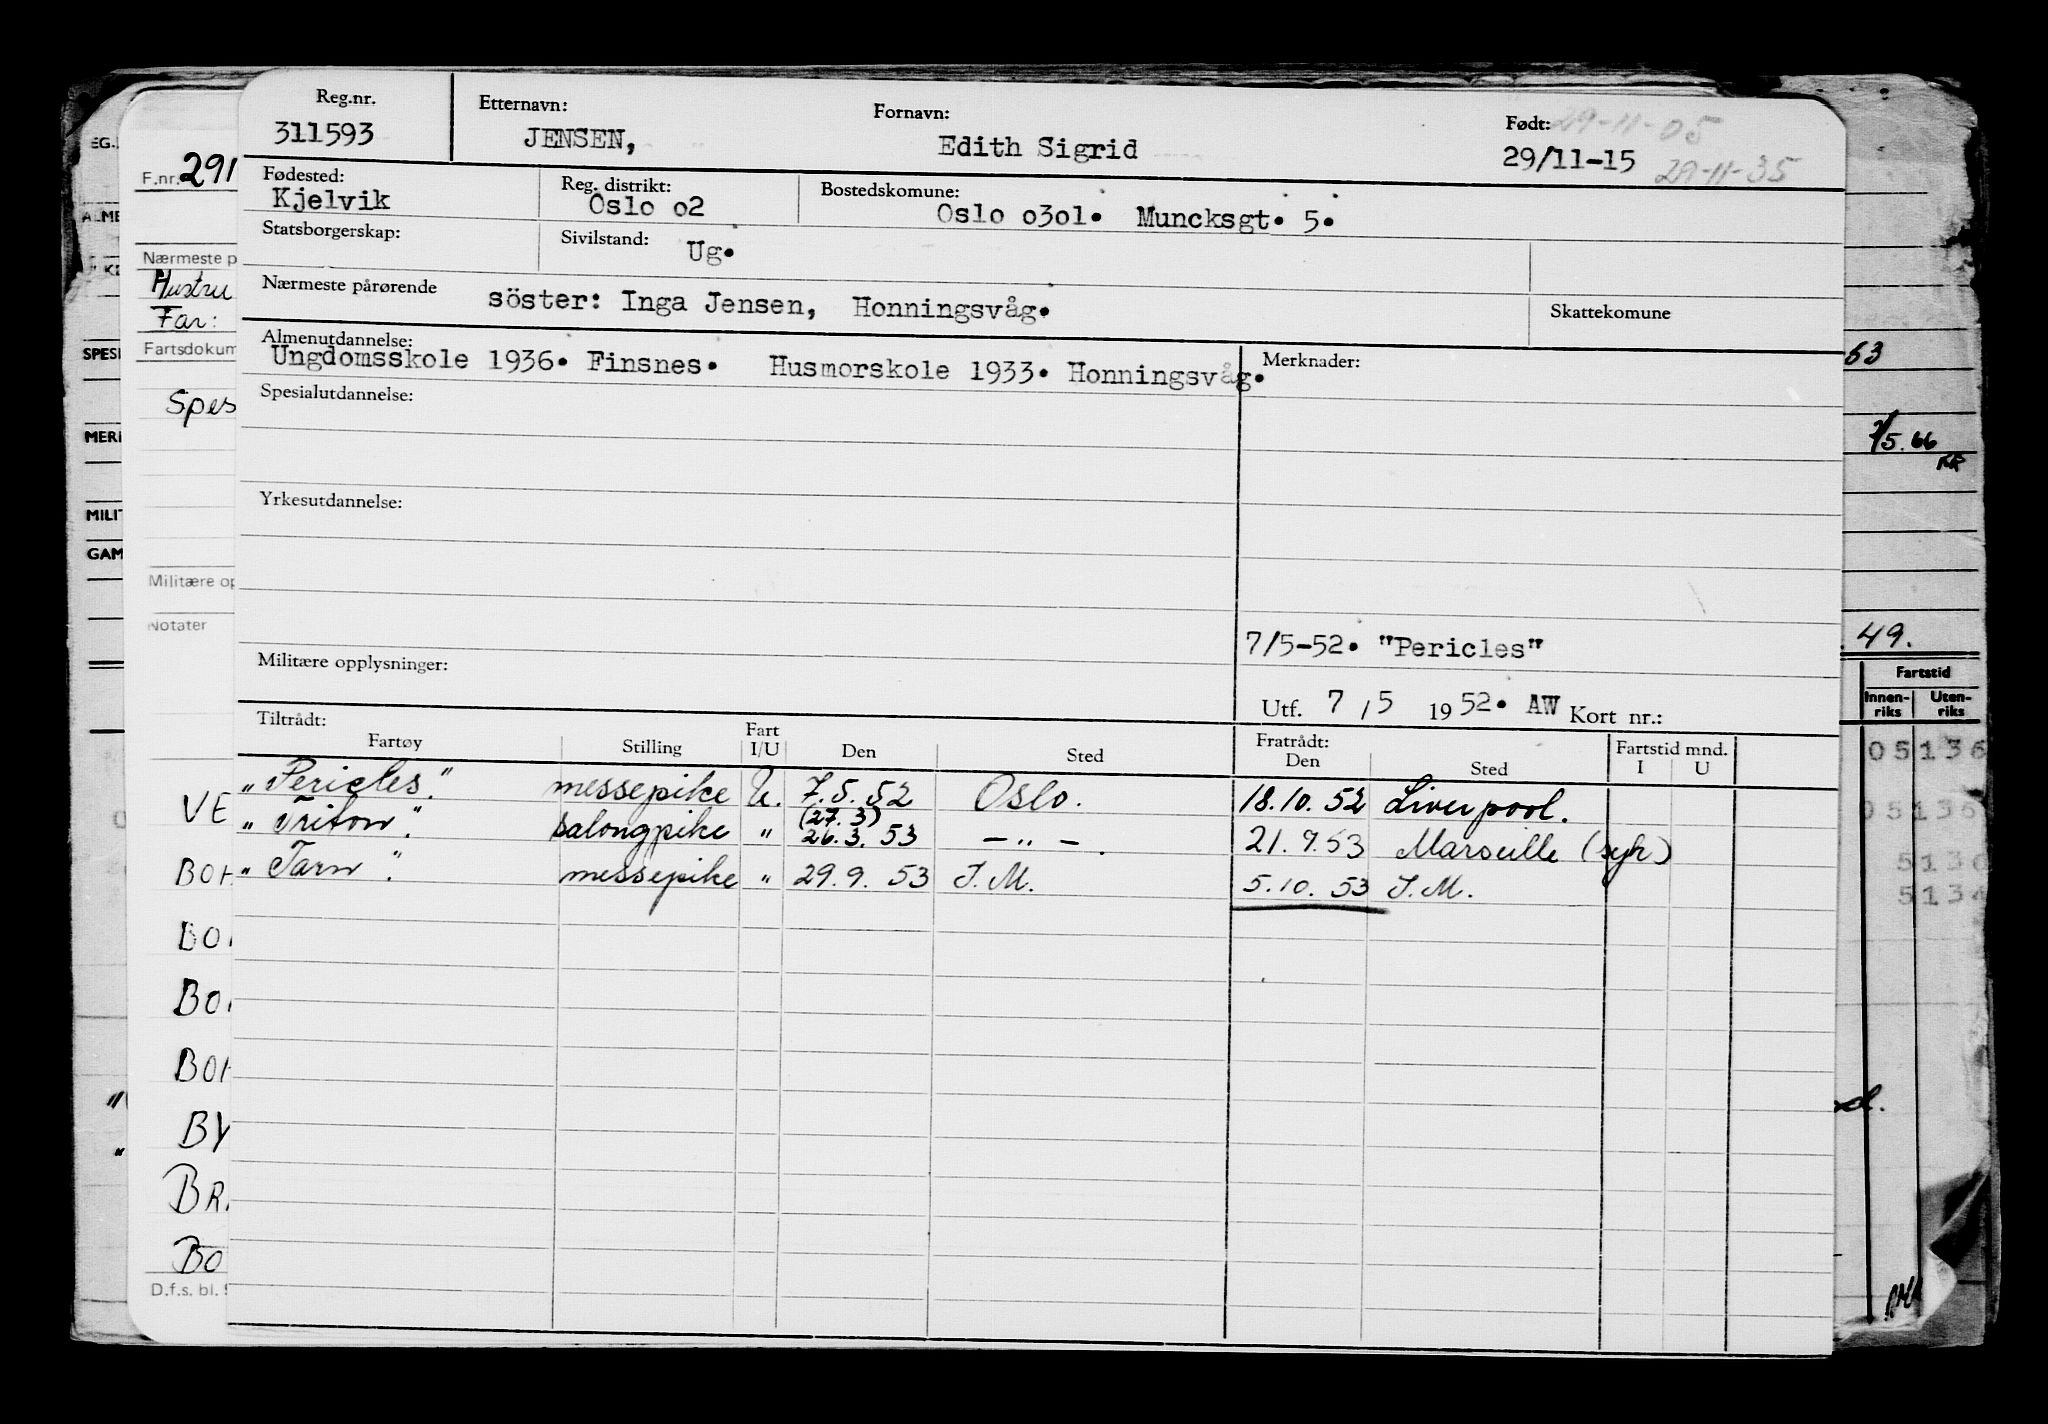 Reg.nr. Etternavn: Fornavn: Født: 29-11-05
311593 JENSEN, Edith Sigrid 29/11-15 29-11-35
Fødested: Reg. distrikt: Bostedskomune:
Kjelvik Oslo o2 Oslo o3o1. Muncksgt. 5.
Statsborgerskap: Sivilstand: Ug.
Nærmeste pårørende söster: Inga Jensen, Honningsvåg. Skattekomune
Almenutdannelse: Merknader:
Ungdomsskole 1936. Finsnes. Husmorskole 1933. Honningsvåg.
Spesialutdannelse:
Yrkesutdannelse:
7/5-52. "Pericles"
Militære opplysninger:
Utf. 7 / 5 19 52. AW Kort nr.:
Tiltrådt: Fratrådt:
Fartøy Stilling Fart I/U Den Sted Den Sted Fartstid mnd. I U
"Pericles." messepike U. 7.5.52 Oslo. 18.10.52 Liverpool.
"Triton". salongpike " (27.3) 26.3.53 — " — . 21.9.53 Marseille (syk)
"Tarn". messepike " 29.9.53 I.M. 5.10.53 I.M.
F.nr. 291
Nærmeste p
Hustru
Far:
Fartsdokum
Spes
Militære op
Notater
VE
BOH
BO
BO
BOH
BY
BR
BO
D.f.s. bl.
EG.
ALME
SPESI
MERI
MILIT
GAM
53
7/5.66
RR
49.
Fartstid
Innen-riks Uten-riks
05136
05136
5136
5134